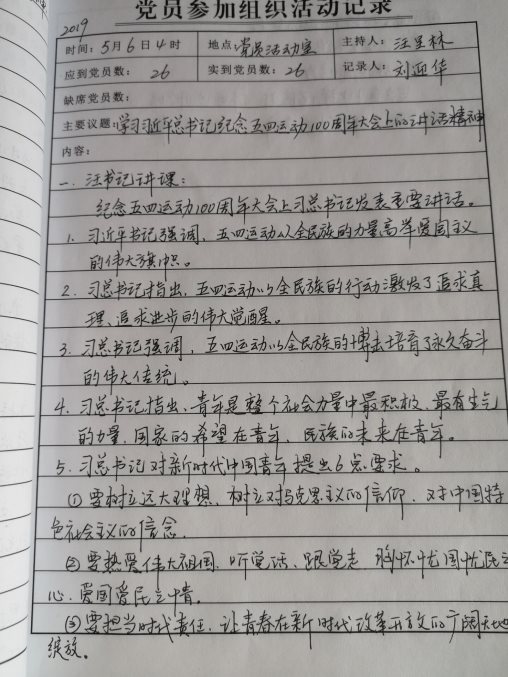 党员参加组织活动记录
2019
时间：5月6日4时 地点：党员活动室 主持人：汪呈林
应到党员数：26 实到党员数：26 记录人：刘迎华
缺席党员数：
主要议题：学习习近平总书记纪念五四运动100周年大会上的讲话精神
内容：
一、汪书记讲课：
纪念五四运动100周年大会上习总书记发表重要讲话。
1. 习近平书记强调，五四运动以全民族的力量高举爱国主义
的伟大旗帜。
2. 习总书记指出，五四运动以全民族的行动激发了追求真
理、追求进步的伟大觉醒。
3. 习总书记强调，五四运动以全民族的搏击培育了永久奋斗
的伟大传统。
4. 习总书记指出、青年是整个社会力量中最积极、最有生气
的力量，国家的希望在青年、民族的未来在青年。
5. 习总书记对新时代中国青年提出6点要求。
①要树立远大理想、树立对马克思主义的信仰、对中国特
色社会主义的信念。
②要热爱伟大祖国、听党话、跟党走 胸怀忧国忧民之
心、爱国爱民之情。
③要担当时代责任、让青春在新时代改革开放的广阔天地
绽放。